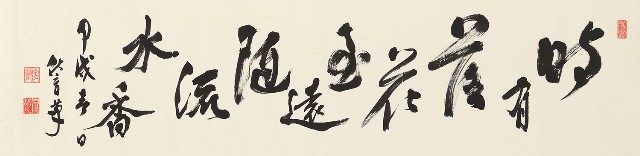 時有落花至遠隨流水香
甲戌